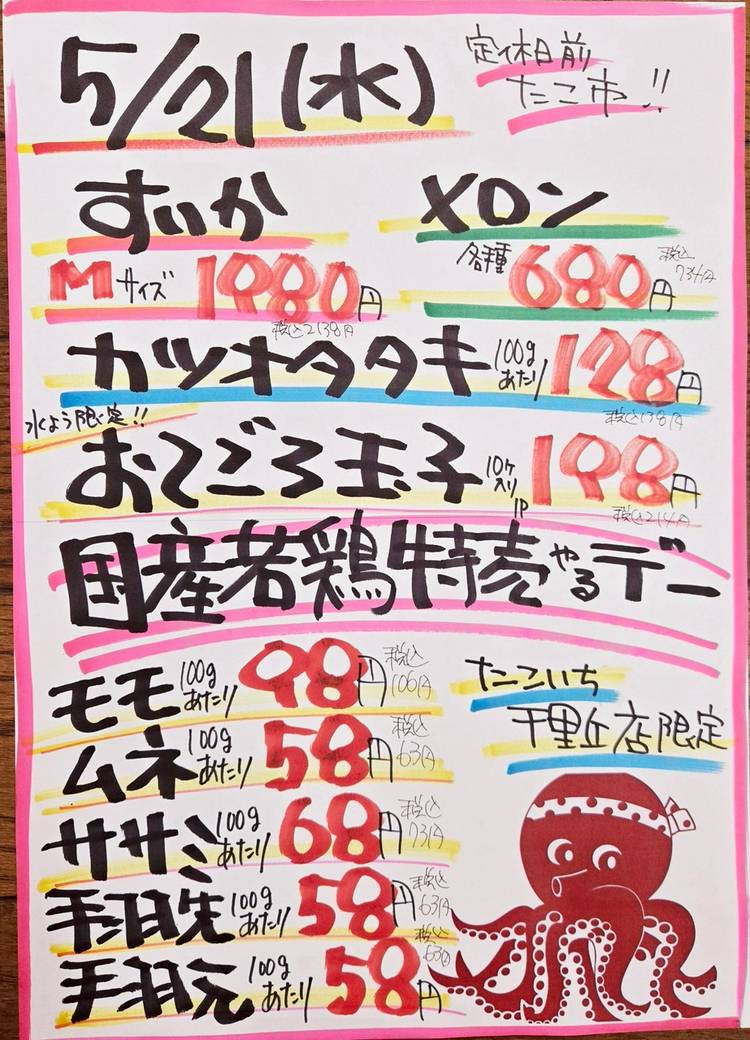 5/21(水)
定休日前
たこ市!!
すいか
メロン
Mサイズ 1980円
税込2138円
各種 680円
税込734円
カツオタタキ 100gあたり 128円
税込138円
水よう限定!!
おてごろ玉子 10ケ入り 1P 198円
税込214円
国産若鶏特売やるデー
モモ 100gあたり 98円 税込106円
ムネ 100gあたり 58円 税込63円
ササミ 100gあたり 68円 税込73円
手羽先 100gあたり 58円 税込63円
手羽元 100gあたり 58円 税込63円
たこいち
千里丘店限定